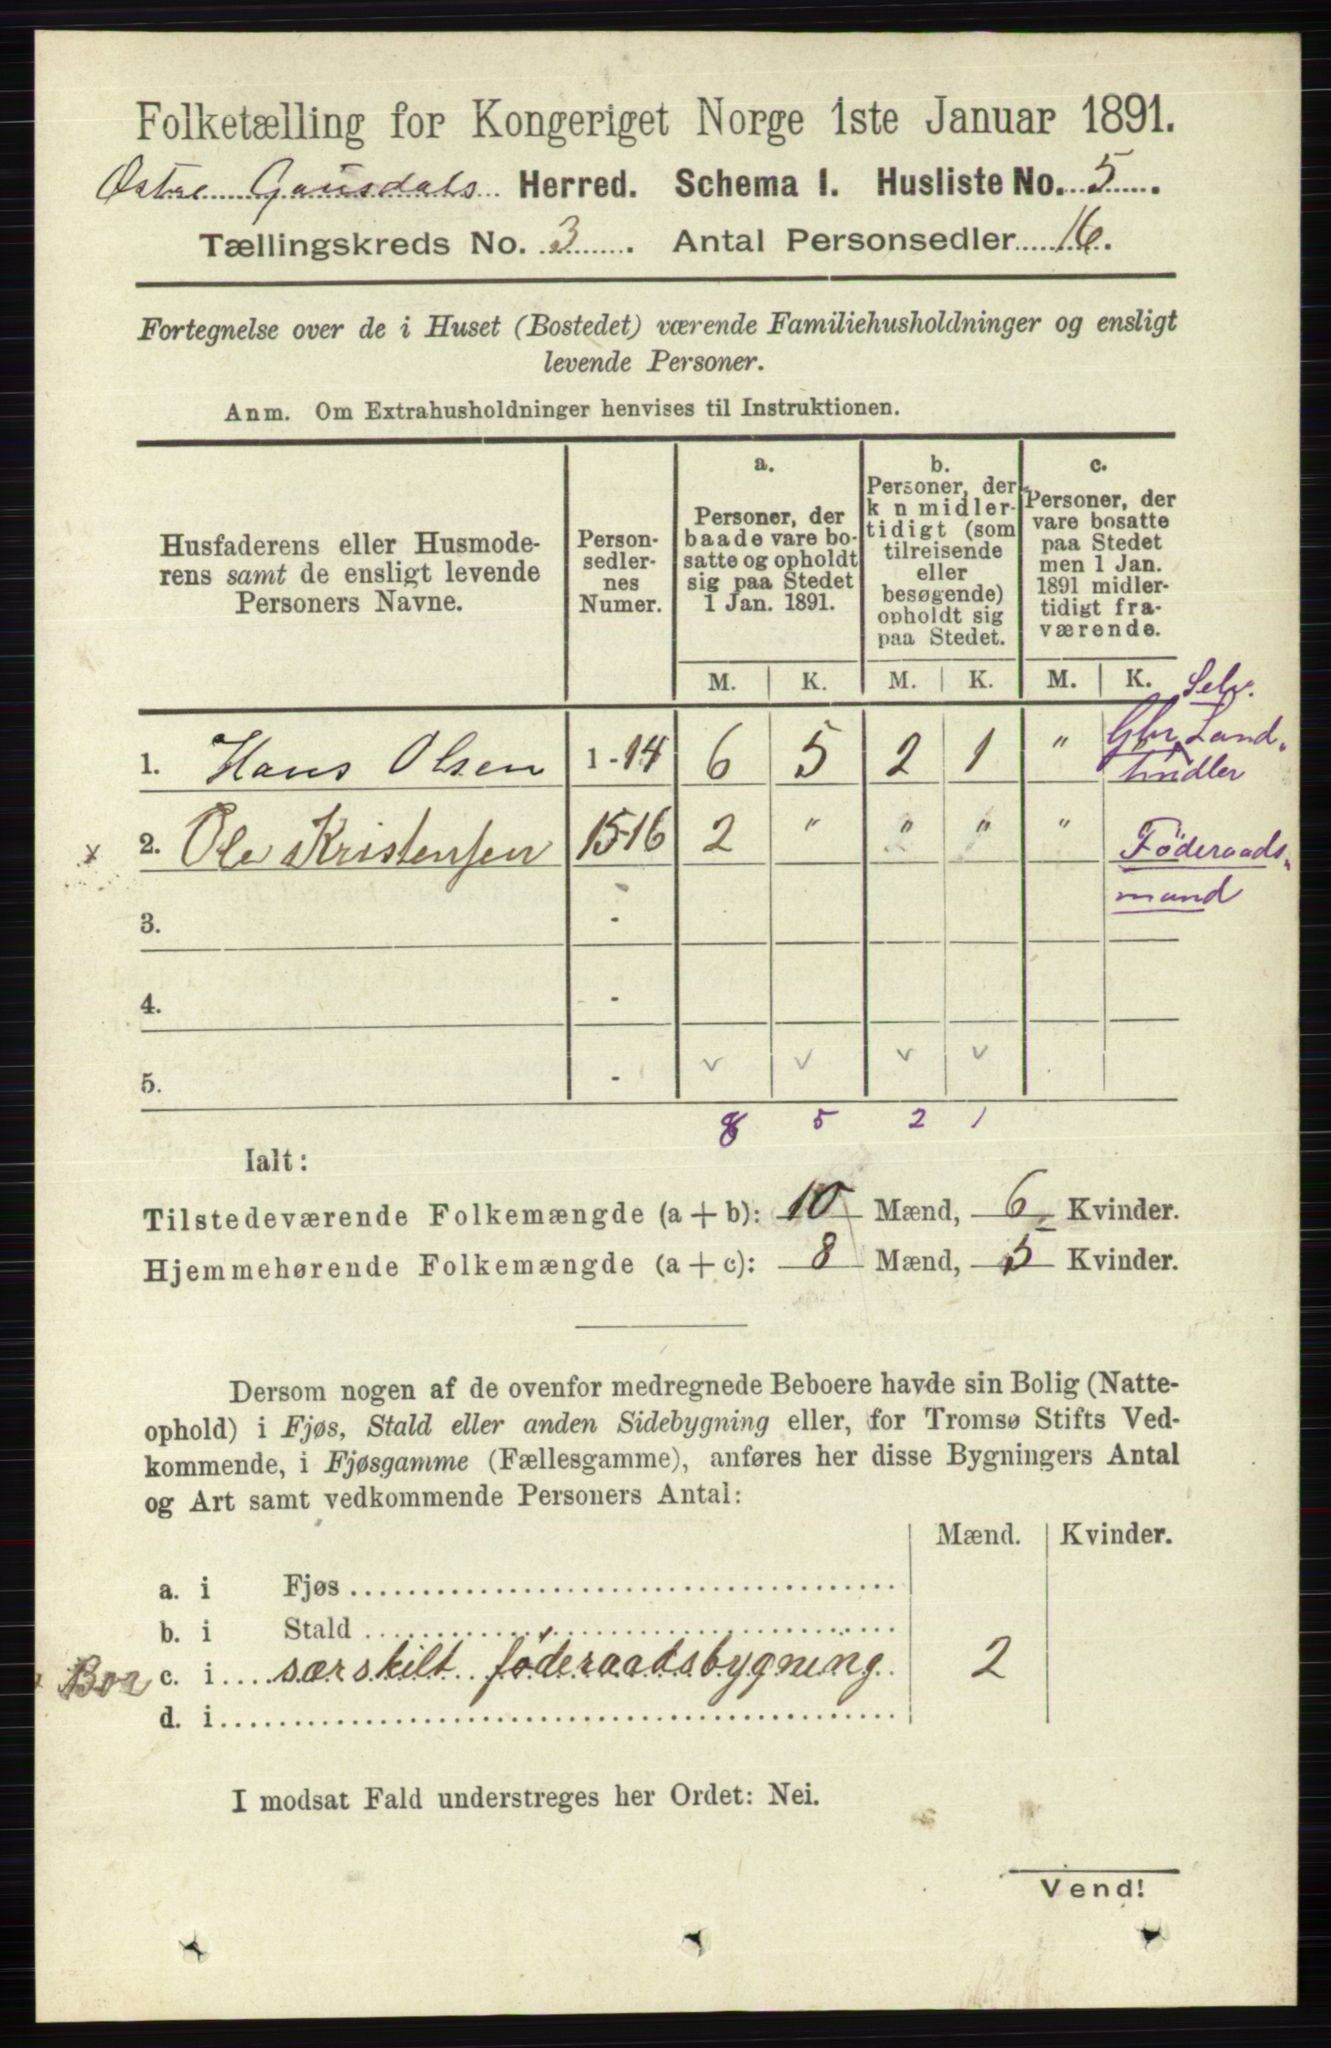 Folketælling for Kongeriget Norge 1ste Januar 1891.
Østre Gausdals Herred. Schema I. Husliste No. 5.
Tællingskreds No. 3. Antal Personsedler 16.
Fortegnelse over de i Huset (Bostedet) værende Familiehusholdninger og ensligt
levende Personer.
Anm. Om Extrahusholdninger henvises til Instruktionen.
Husfaderens eller Husmode-
rens samt de ensligt levende
Personers Navne.
Person-
sedler-
nes
Numer.
a.
Personer, der
baade vare bo-
satte og opholdt
sig paa Stedet
1 Jan. 1891.
b.
Personer, der
k n midler-
tidigt (som
tilreisende
eller
besøgende)
opholdt sig
paa Stedet.
c.
Personer, der
vare bosatte
paa Stedet
men 1 Jan.
1891 midler-
tidigt fra-
værende.
M. K. M. K. M. K.
Selv.
1. Hans Olsen 1-14 6 5 2 1 " Gbr, Land-
hndler
x 2. Ole Kristensen 15-16 2 " " " " Föderaads-
mand
3. -
4. -
5. - v v v v
8 5 2 1
Ialt:
Tilstedeværende Folkemængde (a + b): 10 Mænd, 6 Kvinder.
Hjemmehørende Folkemængde (a + c): 8 Mænd, 5 Kvinder.
Dersom nogen af de ovenfor medregnede Beboere havde sin Bolig (Natte-
ophold) i Fjøs, Stald eller anden Sidebygning eller, for Tromsø Stifts Ved-
kommende, i Fjøsgamme (Fællesgamme), anføres her disse Bygningers Antal
og Art samt vedkommende Personers Antal:
Mænd. Kvinder.
a. i Fjøs
b. i Stald
x Boa c. i særskilt föderaadsbygning. 2
d. i
I modsat Fald understreges her Ordet: Nei.
Vend!